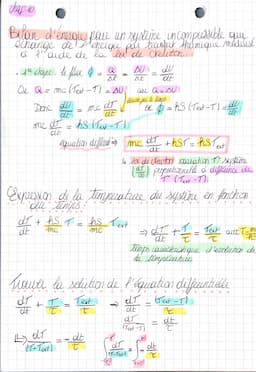 Bilan d'énergie pour un système incompressible qui
échange de l'énergie par transfert thermique modélisé
à l'aide de la loi de Newton
1ère étape : le flux Φ = Q/Δt = ΔU/Δt = dU/dt
Or Q = mc(Text - T) = ΔU car Q = ΔU
Donc dU/dt = mc dT/dt or Φ = hS(Text - T) dU/dt
mc dT/dt = hS(Text - T)
équation différentielle → mc dT/dt + hST = hS Text
la loi de Newton variation T° système
(dT/dt) proportionnelle à différence de
T° (Text - T)
Expression de la température du système en fonction
du temps :
dT/dt + hS/mc T = hS/mc Text ⇒ dT/dt + T/τ = Text/τ avec τ = mc/hS
Temps caractéristique d'évolution de
la température
Trouver la solution de l'équation différentielle
dT/dt + T/τ = Text/τ ⇒ dT/dt = (Text - T)/τ
dT/(Text - T) = dt/τ
⇒ dT/(T - Text) = - dt/τ ∫ dT/(T - Text) = ∫ - dt/τ